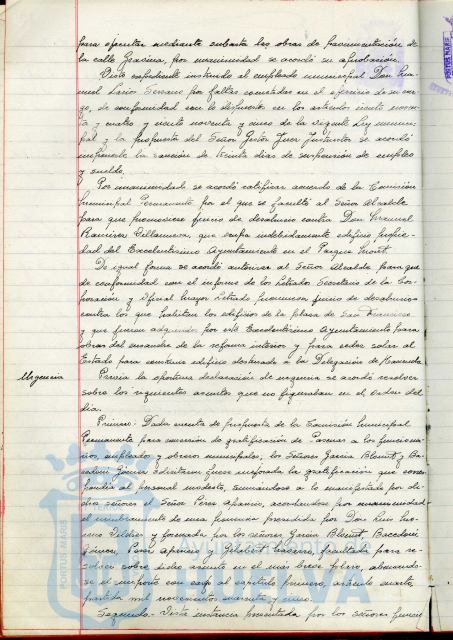 para ejecutar mediante subasta las obras de pavimentación de
la calle Gravina, por unanimidad se acordó su aprobación.
Visto expediente instruido al empleado municipal Don Ma-
nuel Lucio Serrano por faltas cometidas en el ejercicio de su car-
go, de conformidad con lo dispuesto en los artículos ciento noven-
ta y cuatro y ciento noventa y cinco de la vigente Ley munici-
pal y la propuesta del Señor Gestor Juez Instructor se acordó
imponerle la sanción de treinta dias de suspensión de empleo
y sueldo.
Por unanimidad se acordó ratificar acuerdo de la Comisión
Municipal Permanente por el que se facultó al Señor Alcalde
para que promoviese juicio de desahucio contra Don Manuel
Ramirez Villanueva, que ocupa indebidamente edificio, propie-
dad del Excelentísimo Ayuntamiento en el Parque
De igual forma se acordó autorizar al Señor Alcalde para que
de conformidad con el informe de los Letrados Secretario de la Cor-
poración y Oficial Mayor Letrado promueva juicio de desahucio
contra los que habitan los edificios de la plaza de San Francisco
y que fueron adquiridos por este Excelentísimo Ayuntamiento para
obras del ensanche de la reforma interior y para ceder solar al
Estado para construir edificio destinado a la Delegación de Hacienda.
Urgencia
Previa la oportuna declaración de urgencia se acordó resolver
sobre los siguientes asuntos que no figuraban en el orden del
dia.
Primero: Dada cuenta de propuesta de la Comisión Municipal
Permanente para concesión de gratificación de Pascuas a los funciona-
rios, empleados y obreros municipales, los Señores Garcia y Ba-
Gómez solicitaron fuese mejorada la gratificación que corres-
pondia al personal modesto, sumandose a lo manifestado por di-
chos señores el Señor Perez Aparicio, acordandose por unanimidad
el nombramiento de una ponencia presidida por Don Luis
y formada por los señores Garcia
Gómez, Perez Aparicio y Gilabert facultada para re-
solver sobre dicho asunto en el mas breve plazo, abonando-
se el importe con cargo al capitulo primero, articulo cuarto,
partida mil novecientos cuarenta y cinco.
Segundo.- Vista instancia presentada por los señores
PORTUS MARIS